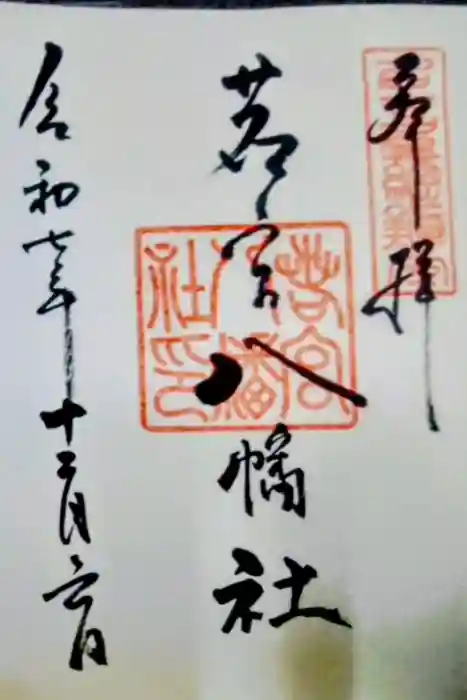 奉拝
若宮八幡社
令和七年十二月六日
若宮
八幡
社印